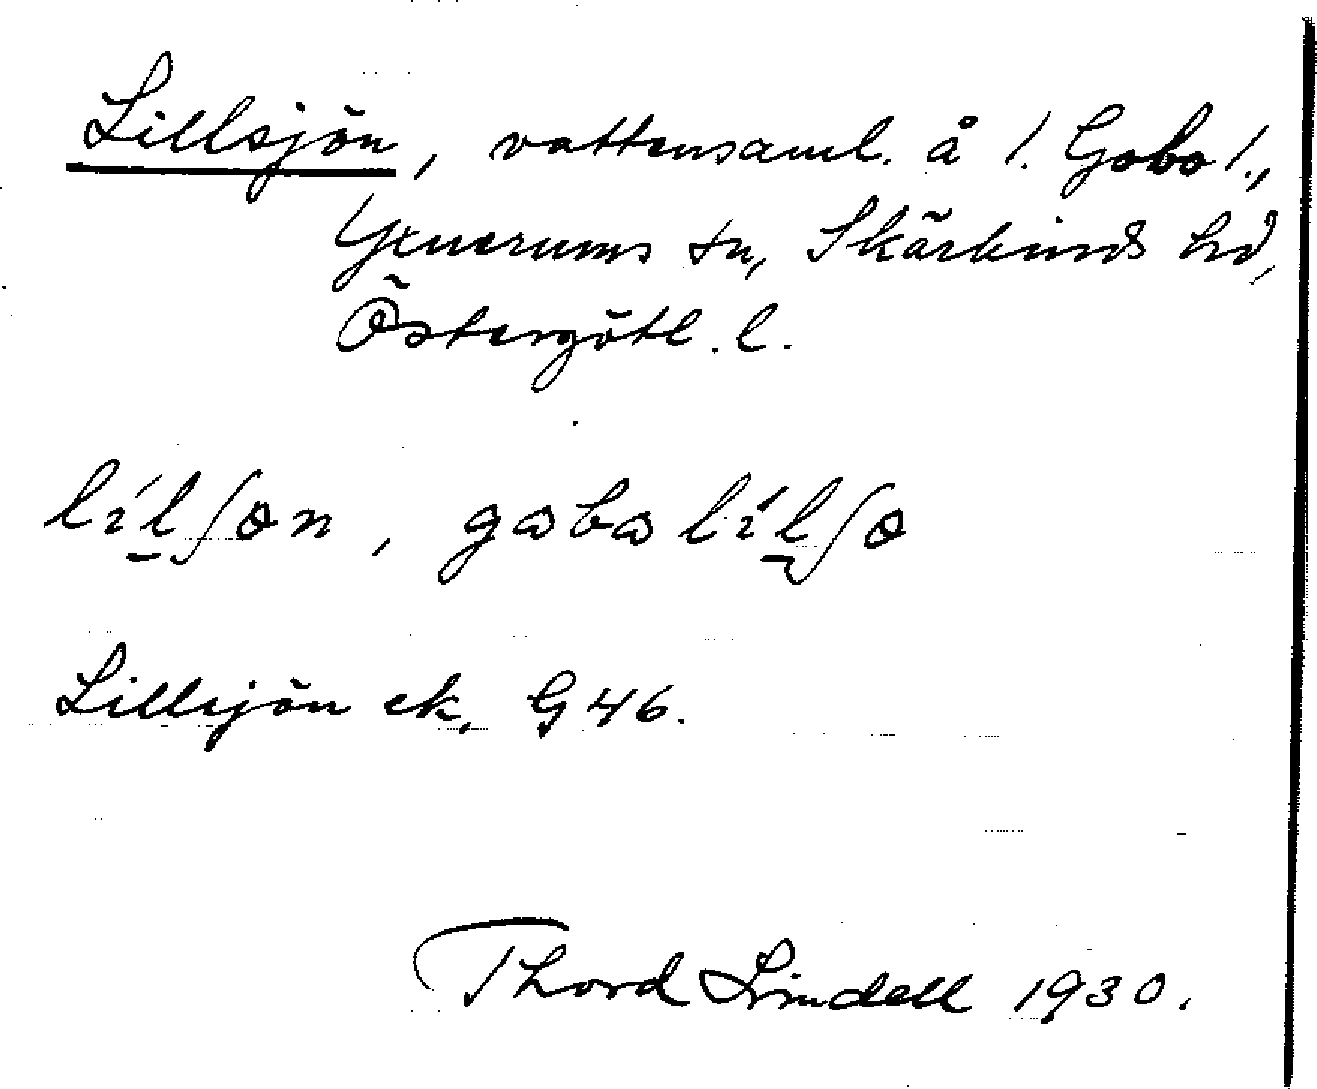 Lillsjön, vattensaml. å /. Gobo /.,
Yxnerums sn, Skärkinds hd,
Östergötl. l.
lílʃøn, goba lílʃø
Lillsjön ek. G 46.
Thord Lindell 1930.